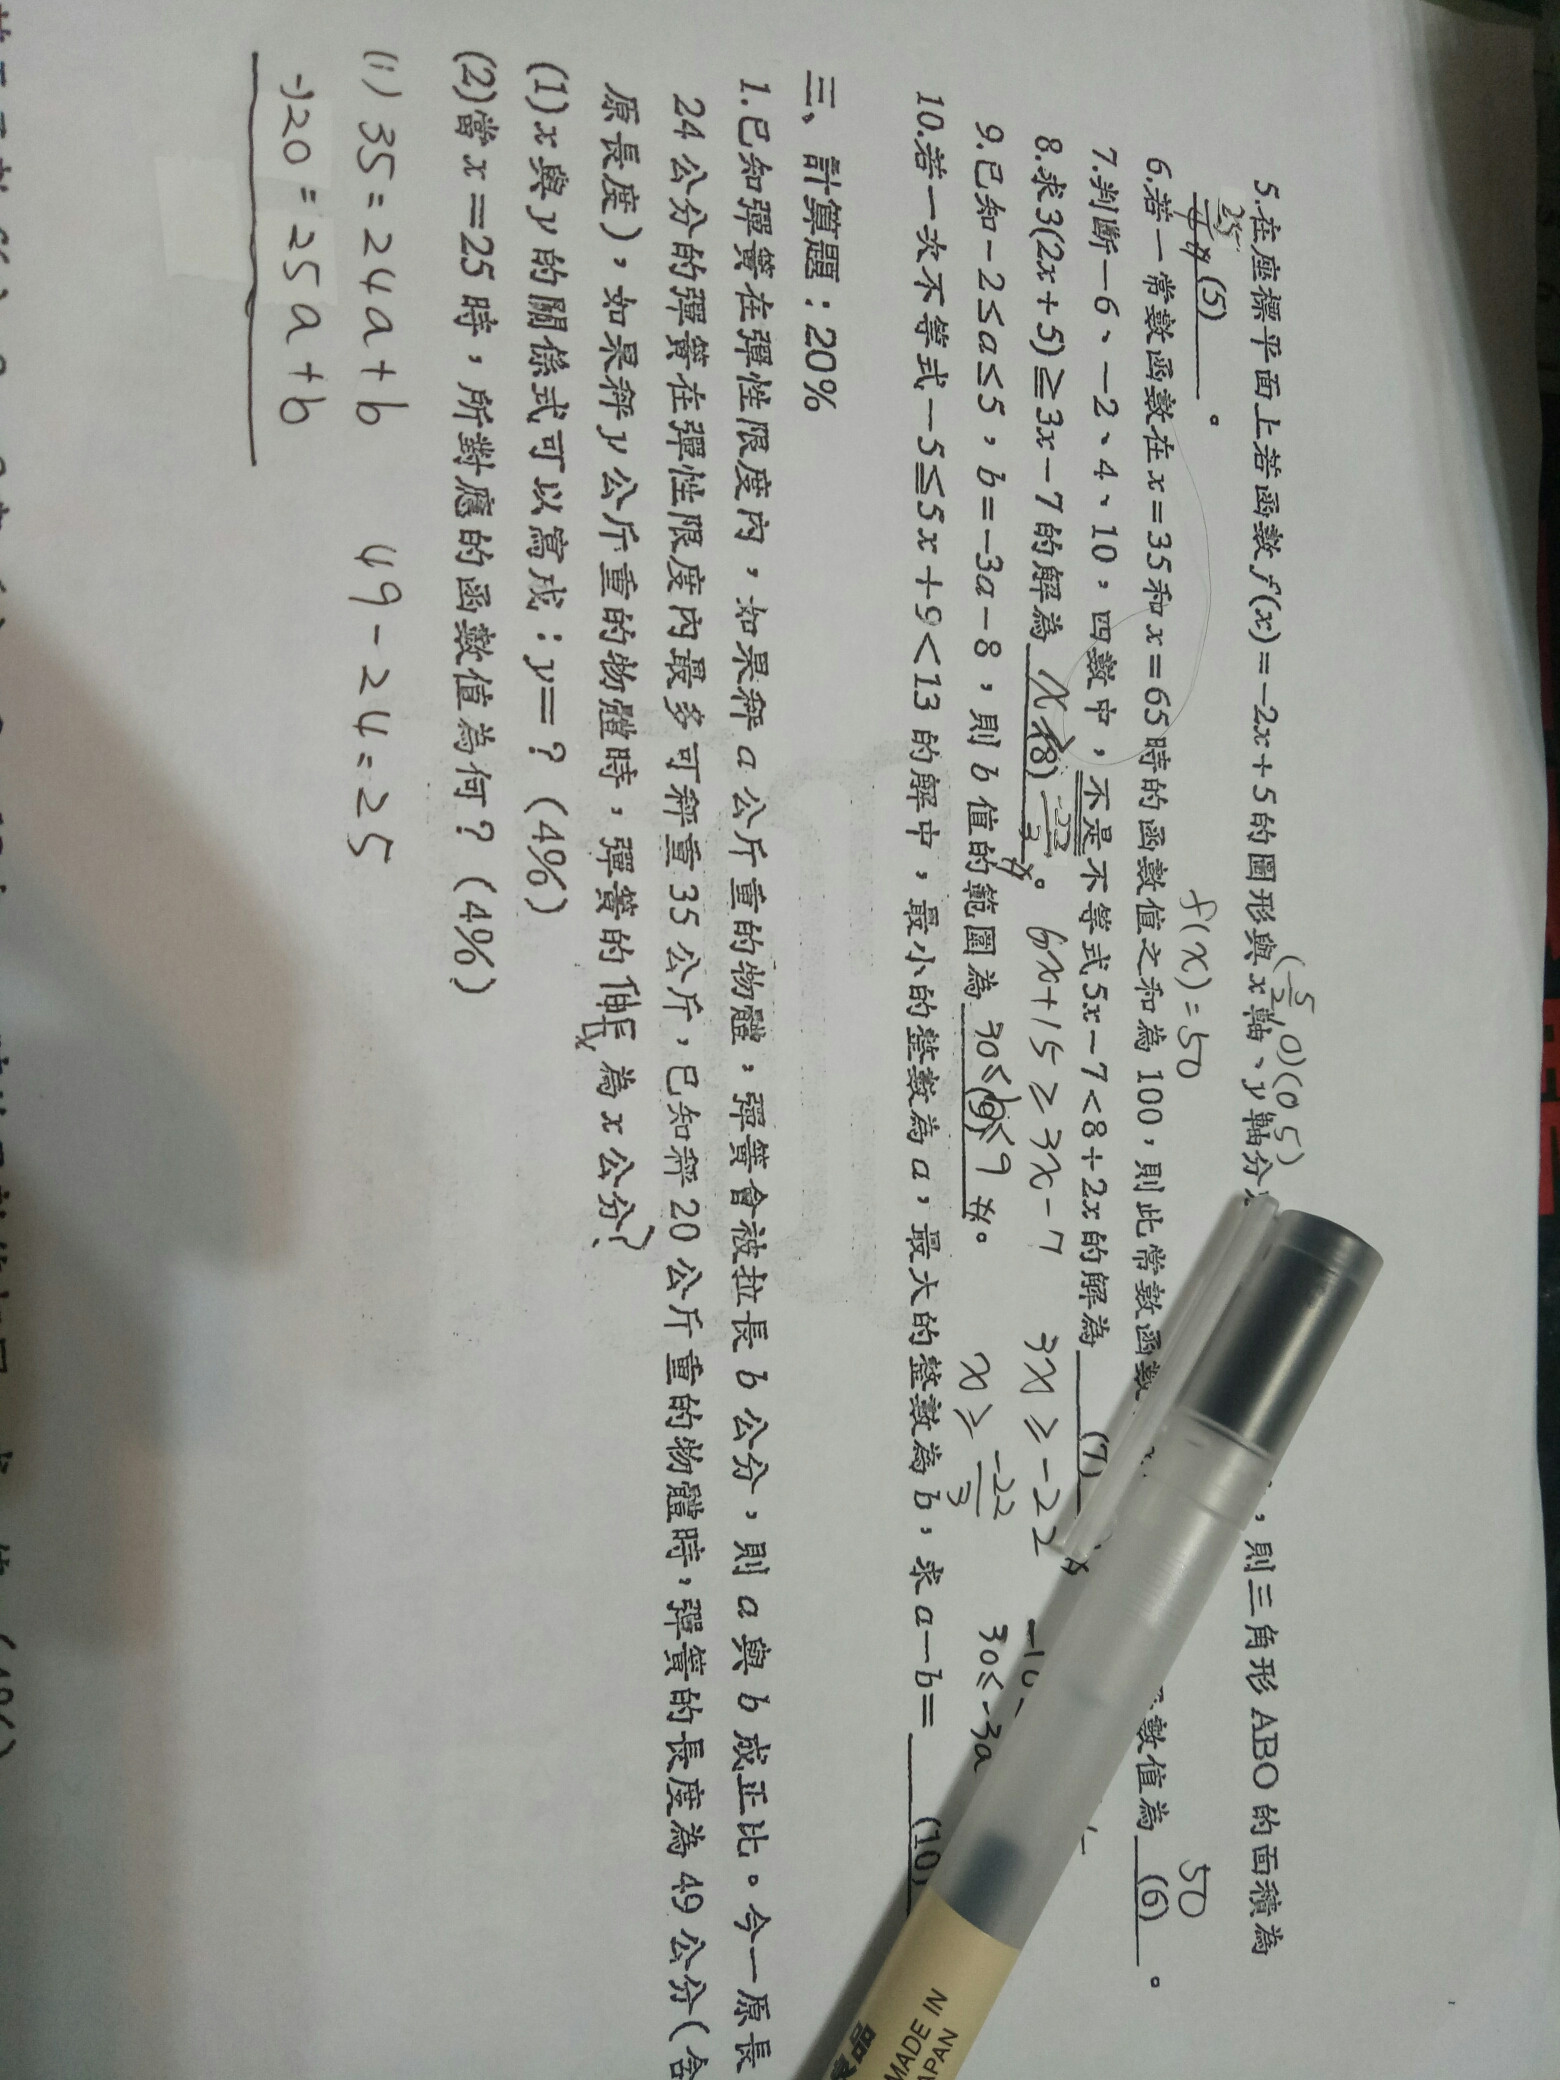 5.在座標平面上若函數f(x)=-2x+5的圖形與x軸、y軸分
(5/2 0)(0 5)
，則三角形ABO的面積為
25/4 (5)。
f(x)=50
6.若一常數函數在x=35和x=65時的函數值之和為100，則此常數函數
數值為 50 (6)。
7.判斷-6、-2、4、10，四數中，不是不等式5x-7<8+2x的解為 (7)
8.求3(2x+5)≧3x-7的解為 x≥(8) -22/3。
6x+15≥3x-7
3x≥-22
x≥-22/3
9.已知-2≤a≤5，b=-3a-8，則b值的範圍為 (9)。
30≤-3a
10.若一次不等式-5≦5x+9<13的解中，最小的整數為a，最大的整數為b，求a-b= (10)
三、計算題：20%
1.已知彈簧在彈性限度內，如果秤a公斤重的物體，彈簧會被拉長b公分，則a與b成正比。今一原長
24公分的彈簧在彈性限度內最多可秤重35公斤，已知秤20公斤重的物體時，彈簧的長度為49公分(含
原長度)，如果秤y公斤重的物體時，彈簧的伸長為x公分?
(1)x與y的關係式可以寫成：y=?(4%)
(2)當x=25時，所對應的函數值為何?(4%)
(1) 35=24a+b
49-24=25
-)20=25a+b
MADE IN